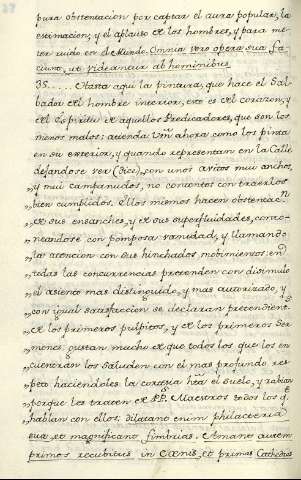 pura obstentacion por captar el aura popular, la
estimacion, y el aplauso de los hombres, y para me
ter ruido en el Mundo. Omnia vero opera sua fa
ciunt, ut videantur ab hominibus.
35..... Hasta aqui la pintura, que hace el Sal
bador del hombre interior, esto es del corazon, y
del Espiritu de aquellos Predicadores, que son los
menos malos: atienda Vm̃ ahora como los pinta
en su exterior, y quando representan en la Calle
dejandose ver (dice), con unos avitos muy anchos,
„ y mui campanudos, no contentos con traerlos
„ bien cumplidos. Ellos mismos hacen obstentac.n
„ de sus ensanches, y de sus superfluidades, conto-
„ neandose con pomposa vanidad, y llamando
„ la atencion con sus hinchados mobimientos: en
„ todas las concurrencias pretenden con disimulo
„ el asiento mas distinguido, y mas autorizado, y
„ con igual satisfaccion se declaran pretendient.
„ de los primeros pulpitos, y de los primeros Ser
„ mones: gustan mucho de que todos los que los en
„ cuentran los saluden con el mas profundo res
„ peto haciendoles la cortesia hta el suelo, y rabian
„ porque les traten de PP. Maestros todos los q.
„ hablan con ellos: dilatano enim philacteria
sua, et magnificano fimbrias. Amano autem
primos recubitus in Cœnis, et primas Cathedras